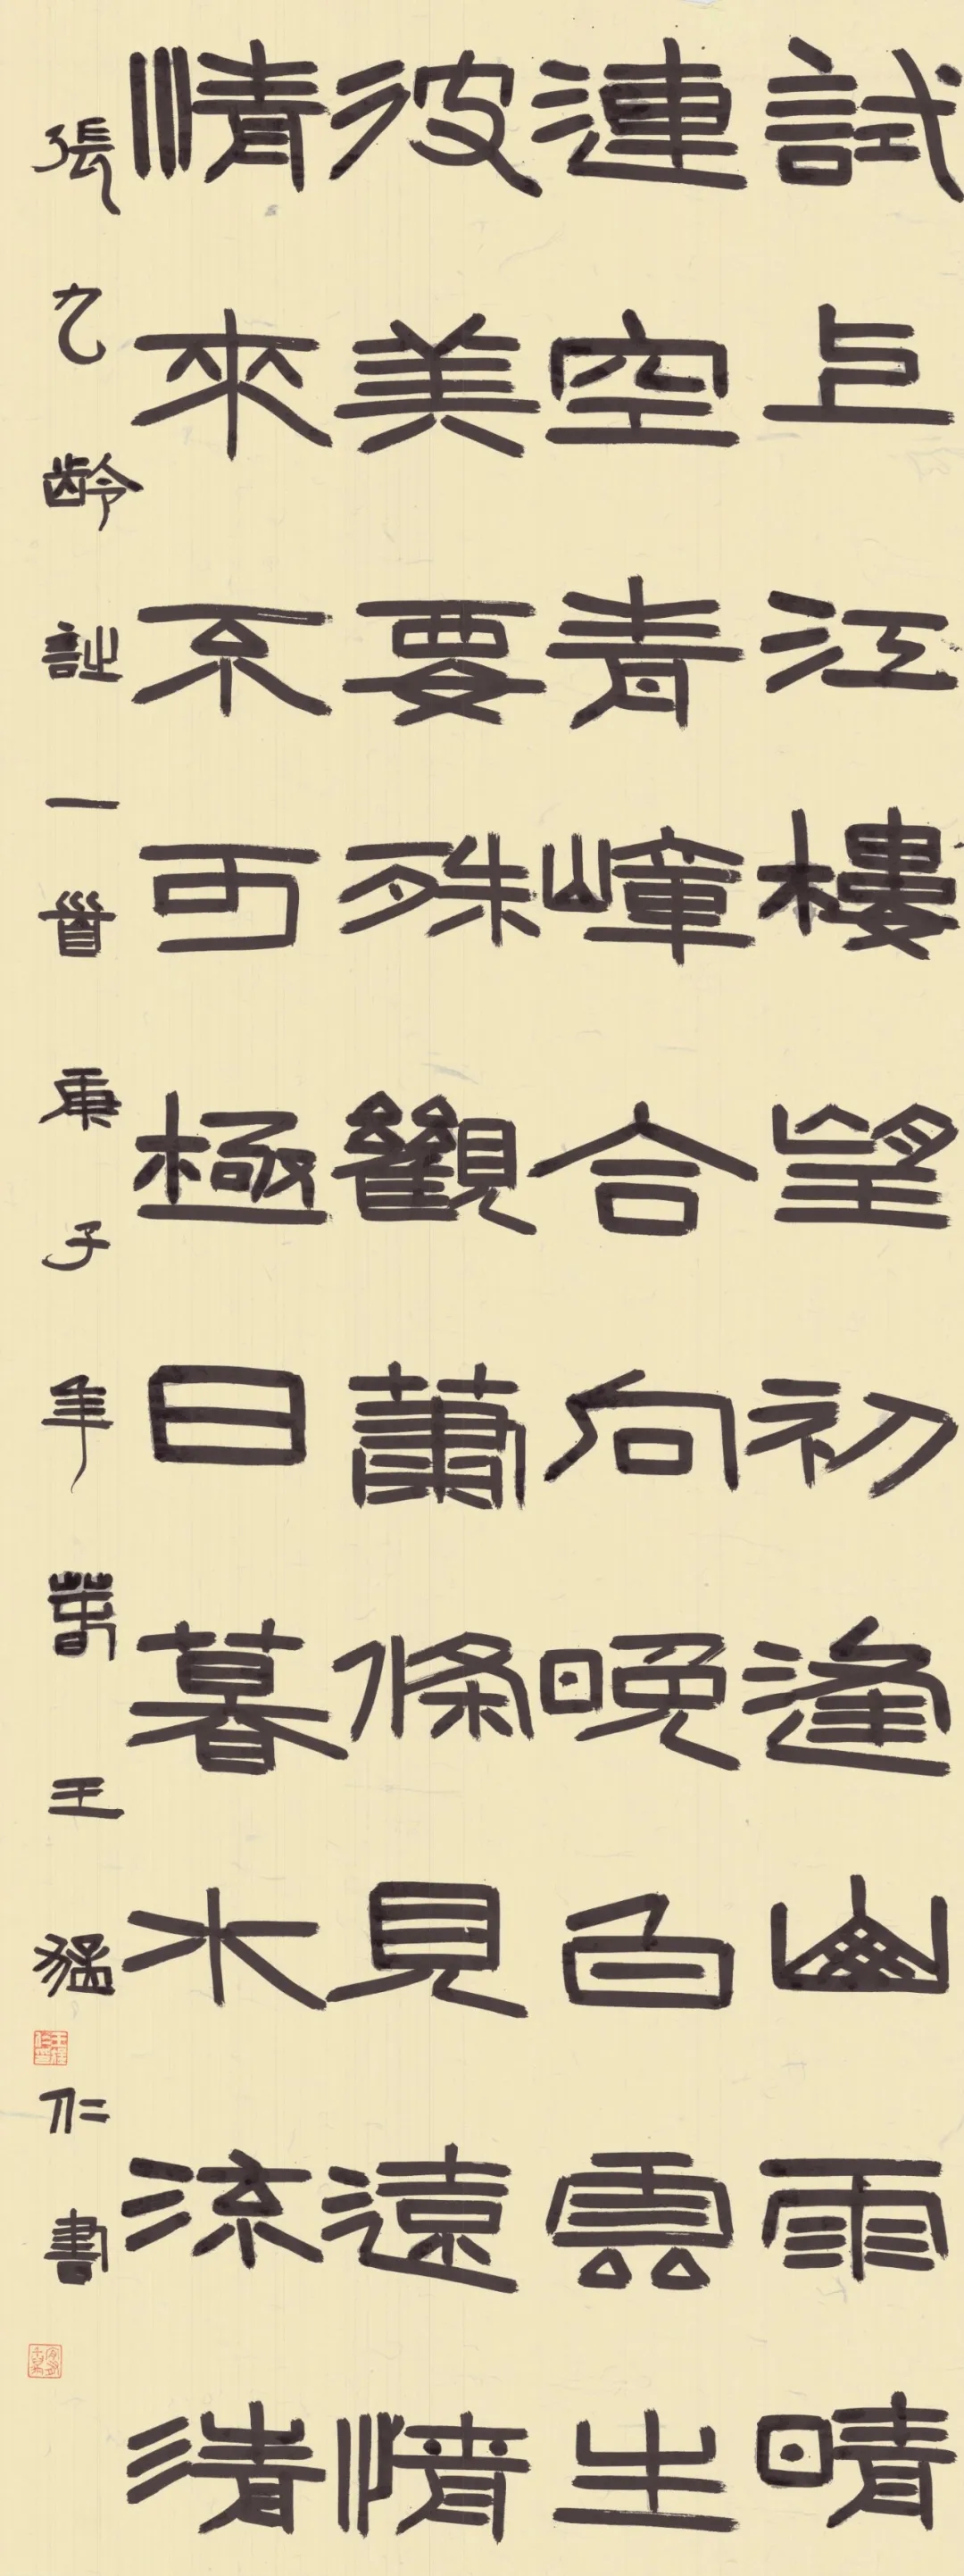 試上江樓望初逢山雨晴
連空青嶂合向晚白雲生
彼美要殊觀蕭條見遠情
情來不可極日暮水流清
張九齡詩一首庚子年夏王猛仁書